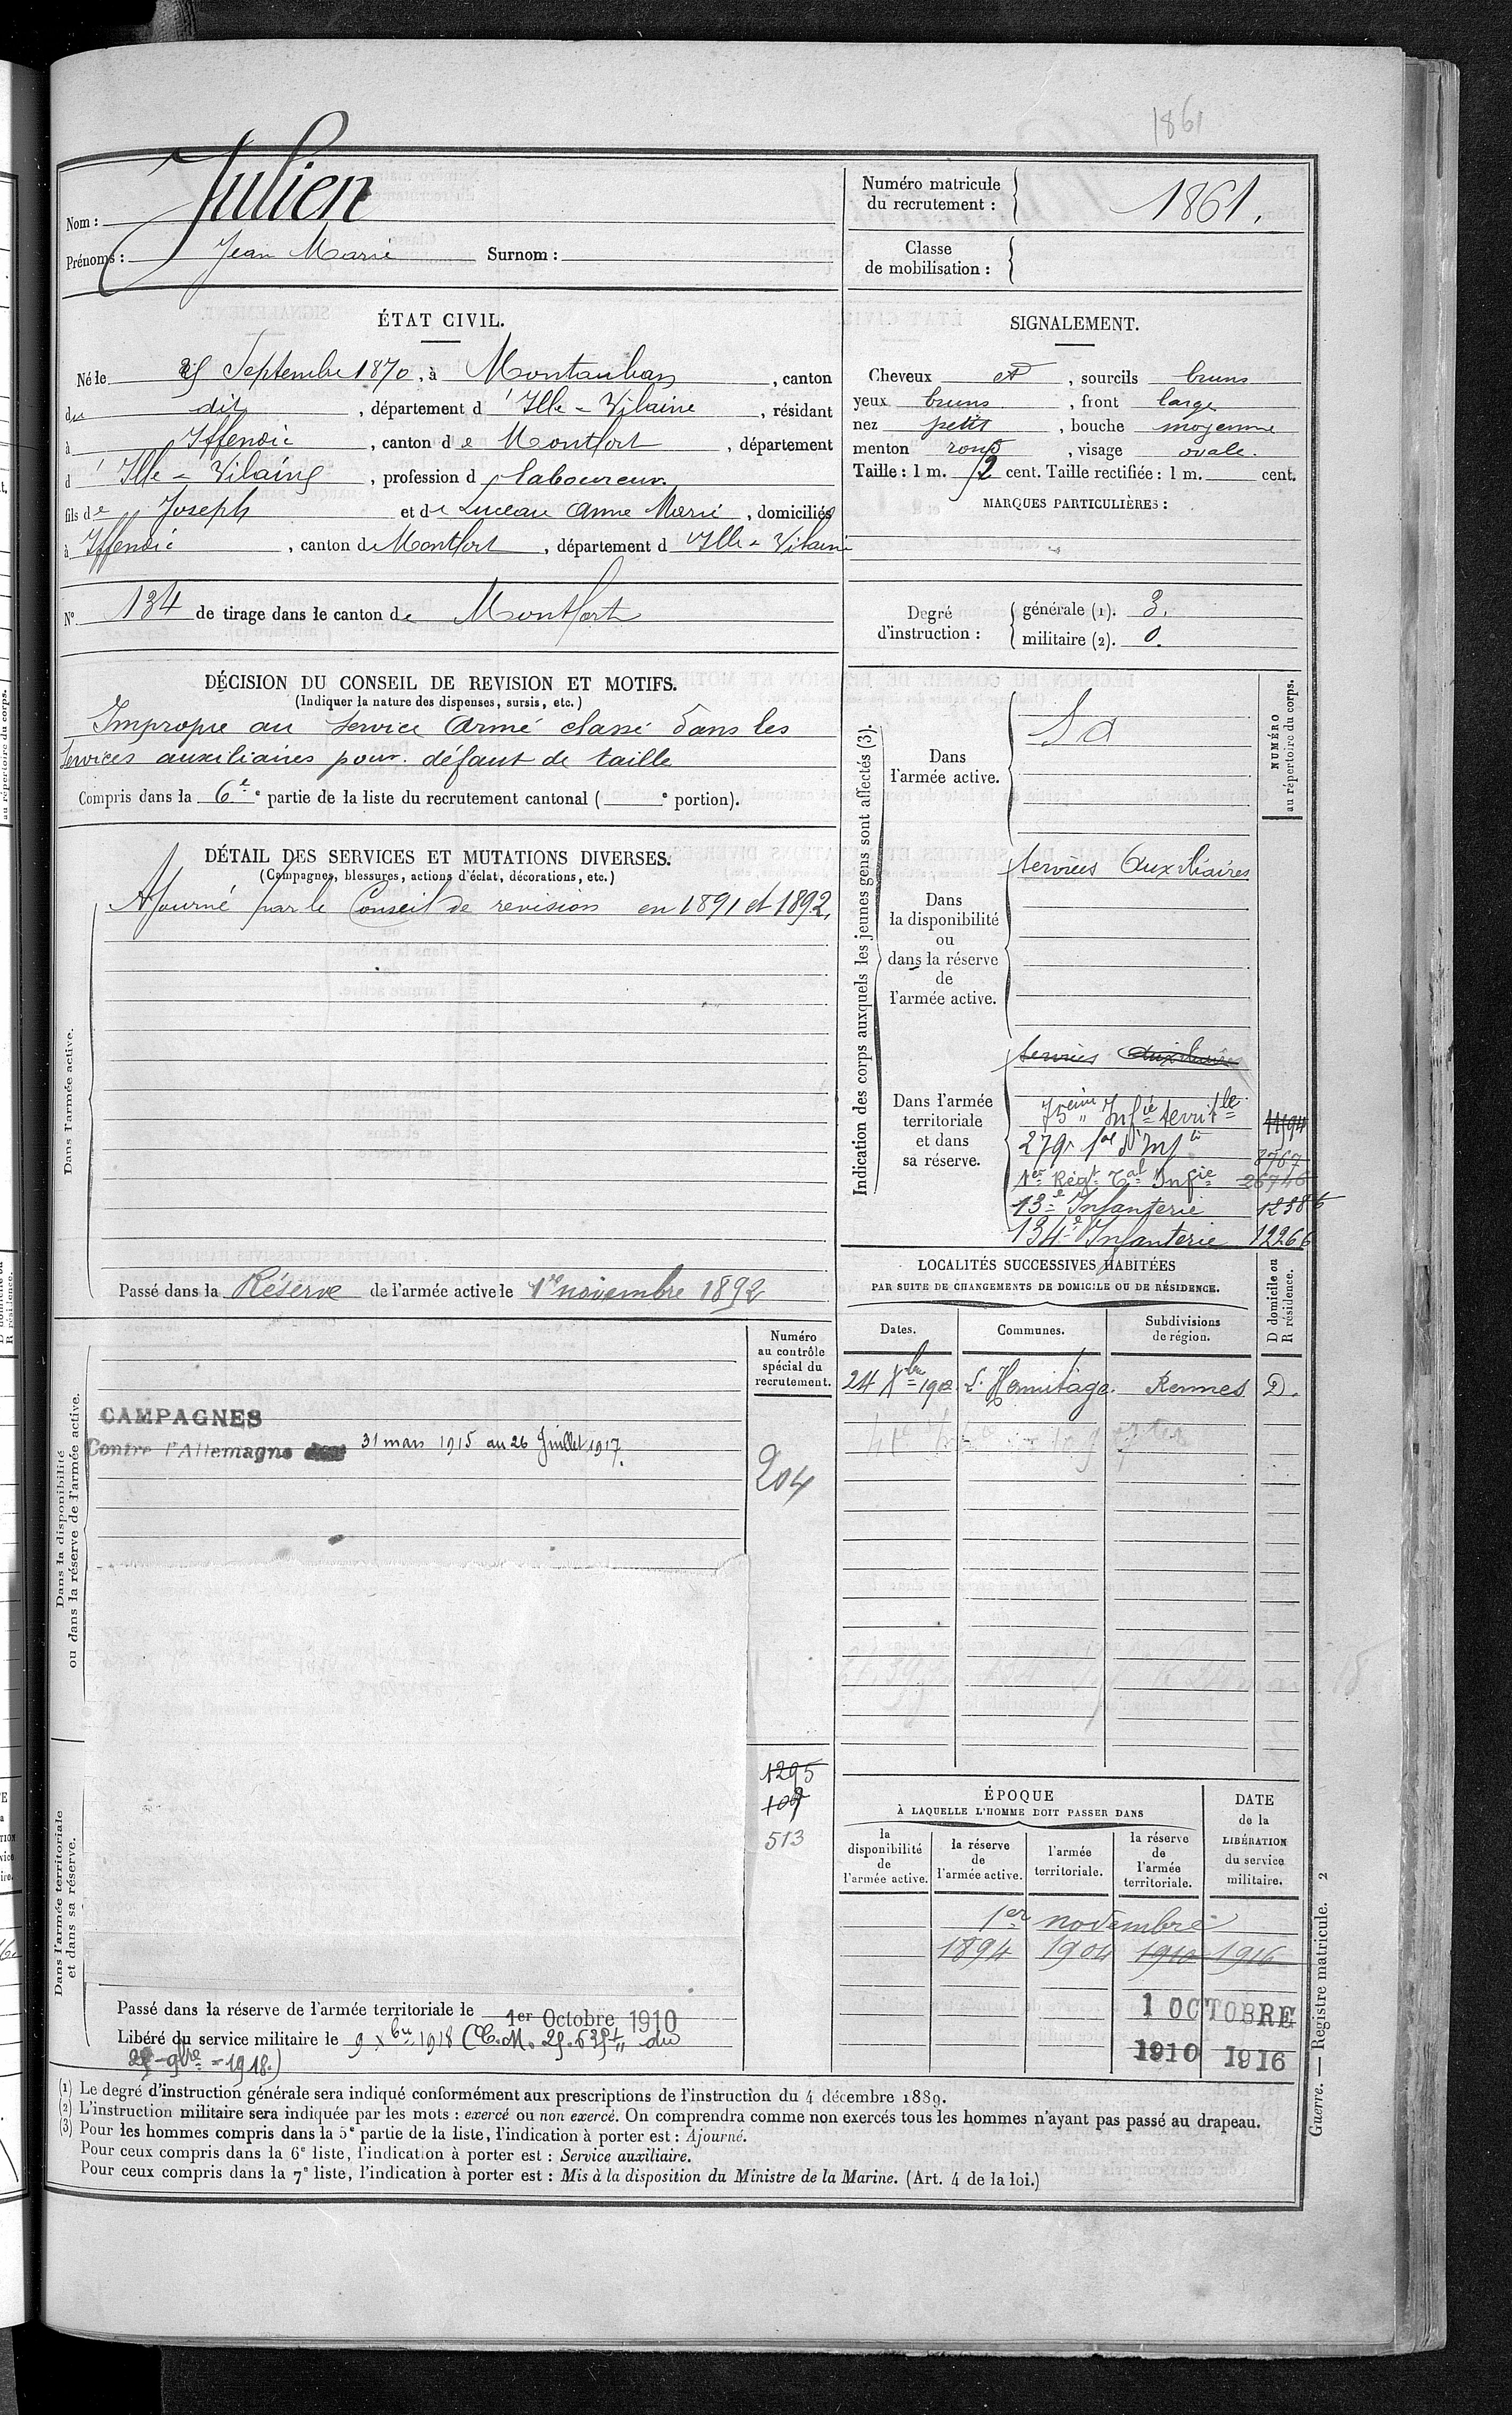 1861
Nom : Julien
Prénoms : Jean Marie Surnom :
Numéro matricule
du recrutement : 1861.
Classe
de mobilisation :
ÉTAT CIVIL.
Né le Septembre 1870, à Montauban, canton
du dit, département d'Ille-Vilaine, résidant
à Iffendic, canton de Montfort, département
d'Ille-Vilaine, profession d laboureur.
fils de Joseph et de Luceau Anne Marie, domiciliés
à Iffendic, canton de Montfort, département d'Ille-Vilaine
N° 134 de tirage dans le canton de Montfort
SIGNALEMENT.
Cheveux et, sourcils bruns
yeux bruns, front large
nez petit, bouche moyenne
menton rond, visage ovale.
Taille : 1 m. 52 cent. Taille rectifiée : 1 m. cent.
MARQUES PARTICULIÈRES :
Degré
d'instruction :
générale (1). 3.
militaire (2). 0.
DÉCISION DU CONSEIL DE REVISION ET MOTIFS.
(Indiquer la nature des dispenses, sursis, etc.)
Impropre au service armé classé dans les
services auxiliaires pour défaut de taille
Compris dans la 6e e partie de la liste du recrutement cantonal ( e portion).
DÉTAIL DES SERVICES ET MUTATIONS DIVERSES.
(Campagnes, blessures, actions d'éclat, décorations, etc.)
Dans l'armée active.
Ajourné par le Conseil de revision en 1891 et 1892.
Passé dans la Réserve de l'armée active le 1er novembre 1892
Indication des corps auxquels les jeunes gens sont affectés (3).
NUMÉRO
au répertoire du corps.
Dans
l'armée active.
Dans
la disponibilité
ou
dans la réserve
de
l'armée active.
Services Auxiliaires
Dans l'armée
territoriale
et dans
sa réserve.
Services Auxiliaires
75eme Infie territle 11594
8767
1er Régt Tal Infie 26746
13e Infanterie 12386
134e Infanterie 12266
LOCALITÉS SUCCESSIVES HABITÉES
PAR SUITE DE CHANGEMENTS DE DOMICILE OU DE RÉSIDENCE.
Dates.
Communes.
Subdivisions
de région.
D domicile ou
R résidence.
24 Xbre 1902. L'Hermitage. Rennes D.
Dans la disponibilité
ou dans la réserve de l'armée active.
Numéro
au contrôle
spécial du
recrutement.
CAMPAGNES
Contre l'Allemagne 31 mars 1915 au 26 Juillet 1917.
204
Dans l'armée territoriale
et dans sa réserve.
1295
109
513
Passé dans la réserve de l'armée territoriale le 1er Octobre 1910
Libéré du service militaire le 9 Xbre 1918 (C.M. du
9bre 1918.)
ÉPOQUE
À LAQUELLE L'HOMME DOIT PASSER DANS
la
disponibilité
de
l'armée active.
la réserve
de
l'armée active.
l'armée
territoriale.
la réserve
de
l'armée
territoriale.
DATE
de la
LIBÉRATION
du service
militaire.
1er novembre
1894 1904 1910 1916
1 OCTOBRE
1910 1916
(1) Le degré d'instruction générale sera indiqué conformément aux prescriptions de l'instruction du 4 décembre 1889.
(2) L'instruction militaire sera indiquée par les mots : exercé ou non exercé. On comprendra comme non exercés tous les hommes n'ayant pas passé au drapeau.
(3) Pour les hommes compris dans la 5e partie de la liste, l'indication à porter est : Ajourné.
Pour ceux compris dans la 6e liste, l'indication à porter est : Service auxiliaire.
Pour ceux compris dans la 7e liste, l'indication à porter est : Mis à la disposition du Ministre de la Marine. (Art. 4 de la loi.)
Guerre. — Registre matricule. 2